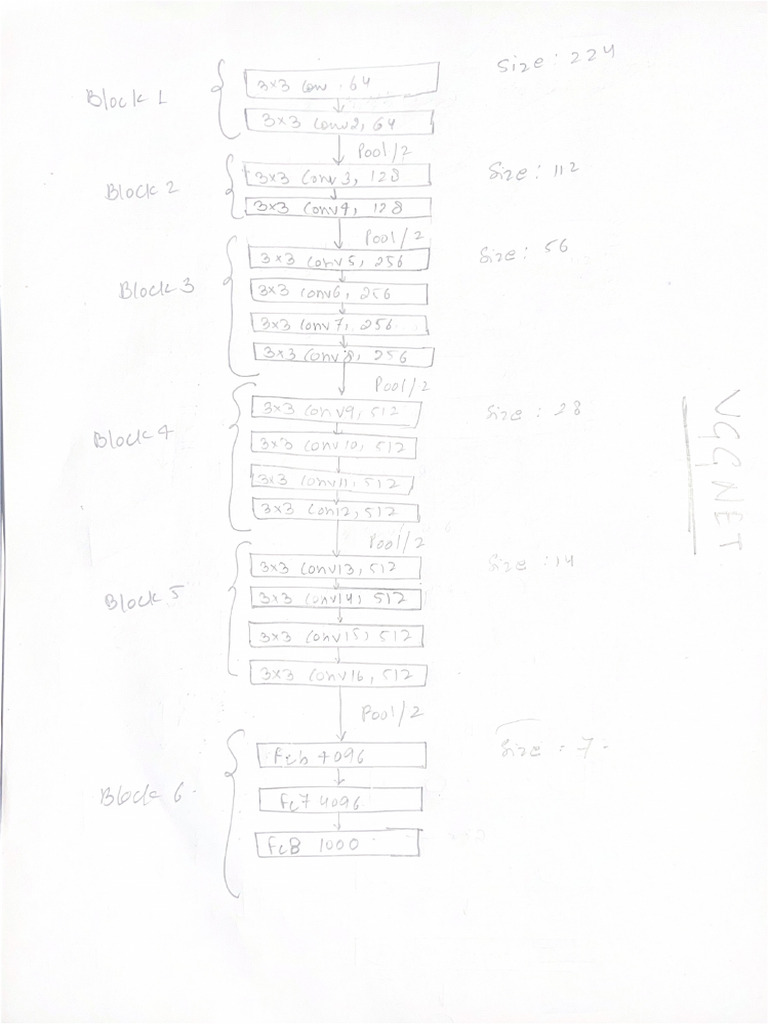 Size: 224
Block 1
3x3 Conv, 64
3x3 Conv2, 64
Pool/2
Block 2
3x3 Conv3, 128
Size: 112
3x3 Conv4, 128
Pool/2
Size: 56
3x3 Conv5, 256
Block 3
3x3 Conv6, 256
3x3 Conv7, 256
3x3 Conv8, 256
Pool/2
3x3 Conv9, 512
Size: 28
Block 4
3x3 Conv10, 512
3x3 Conv11, 512
3x3 Con12, 512
VGGNET
Pool/2
3x3 Conv13, 512
Size: 14
Block 5
3x3 Conv14, 512
3x3 Conv15, 512
3x3 Conv16, 512
Pool/2
Fc6 4096
Size: 7
Block 6
Fc7 4096
Fc8 1000